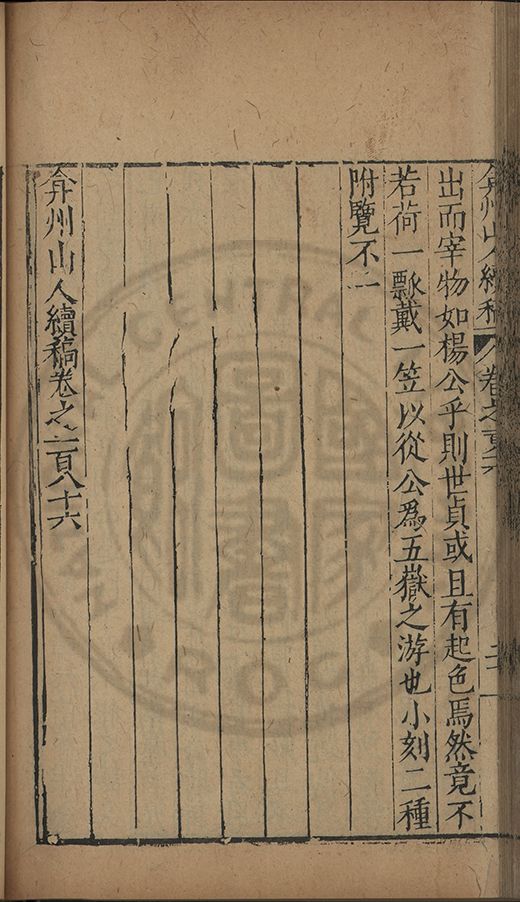 弇州山人續稿 卷之百八十六
出而宰物如楊公乎則世貞或且有起色焉然竟不
若荷一瓢戴一笠以從公爲五嶽之游也小刻二種
附覽不二
弇州山人續稿卷之一百八十六